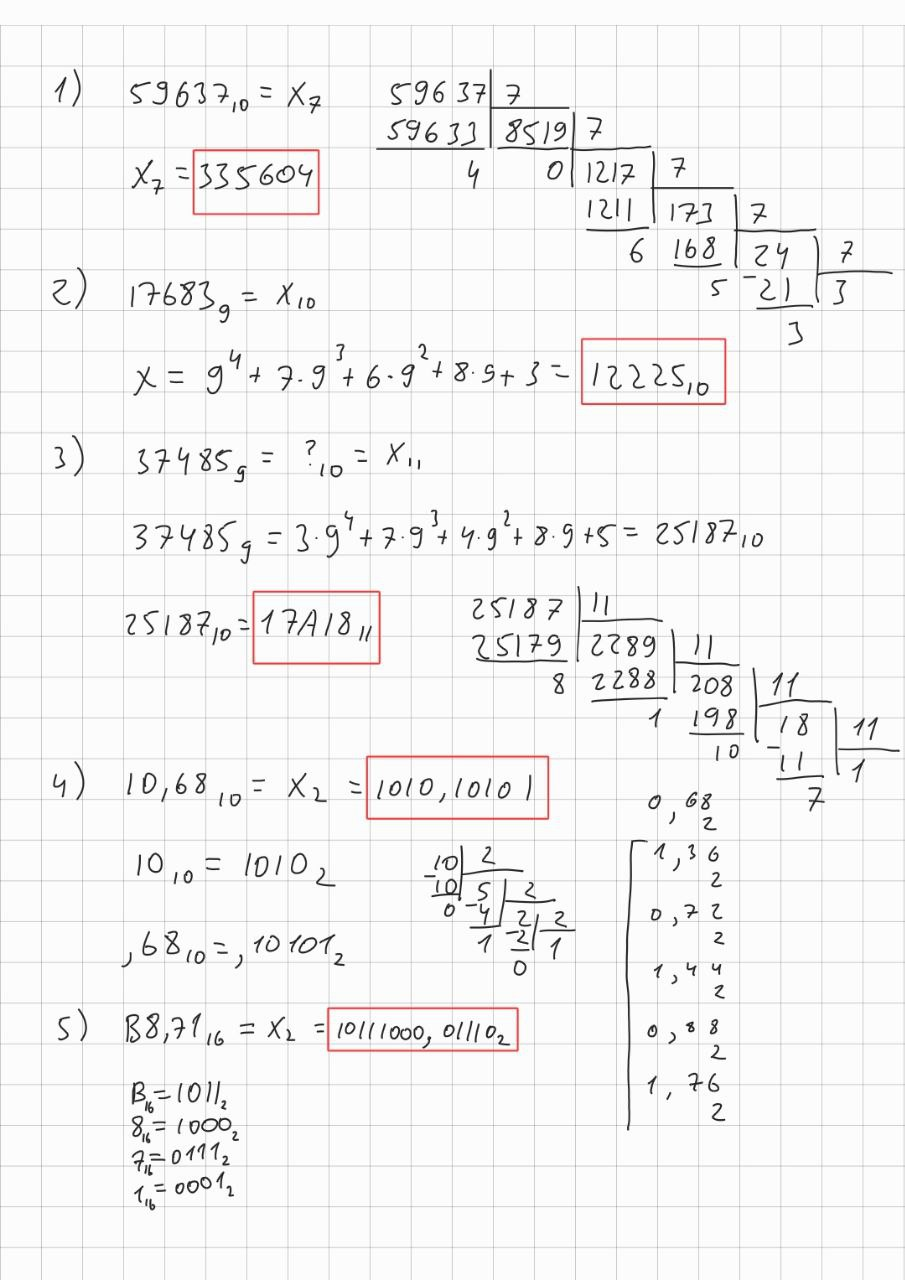 1) 59637₁₀ = X₇
59637 | 7
59633 8519 | 7
X₇ = 335604
4 0 1217 | 7
1211 173 | 7
6 168 24 | 7
5 -21 3
3
2) 17683₉ = X₁₀
X = 9⁴ + 7·9³ + 6·9² + 8·9 + 3 = 12225₁₀
3) 37485₉ = ?₁₀ = X₁₁
37485₉ = 3·9⁴ + 7·9³ + 4·9² + 8·9 + 5 = 25187₁₀
25187₁₀ = 17A18₁₁
25187 | 11
25179 2289 | 11
8 2288 208 | 11
1 198 18 | 11
10 -11 1
7
4) 10,68₁₀ = X₂ = 1010,10101
10₁₀ = 1010₂
-10 | 2
10 5 | 2
0 -4 2 | 2
1 -2 1
0
,68₁₀ = ,10101₂
0,68
2
1,36
2
0,72
2
1,44
2
0,88
2
1,76
2
5) B8,71₁₆ = X₂ = 10111000,01110₂
B₁₆ = 1011₂
8₁₆ = 1000₂
7₁₆ = 0111₂
1₁₆ = 0001₂